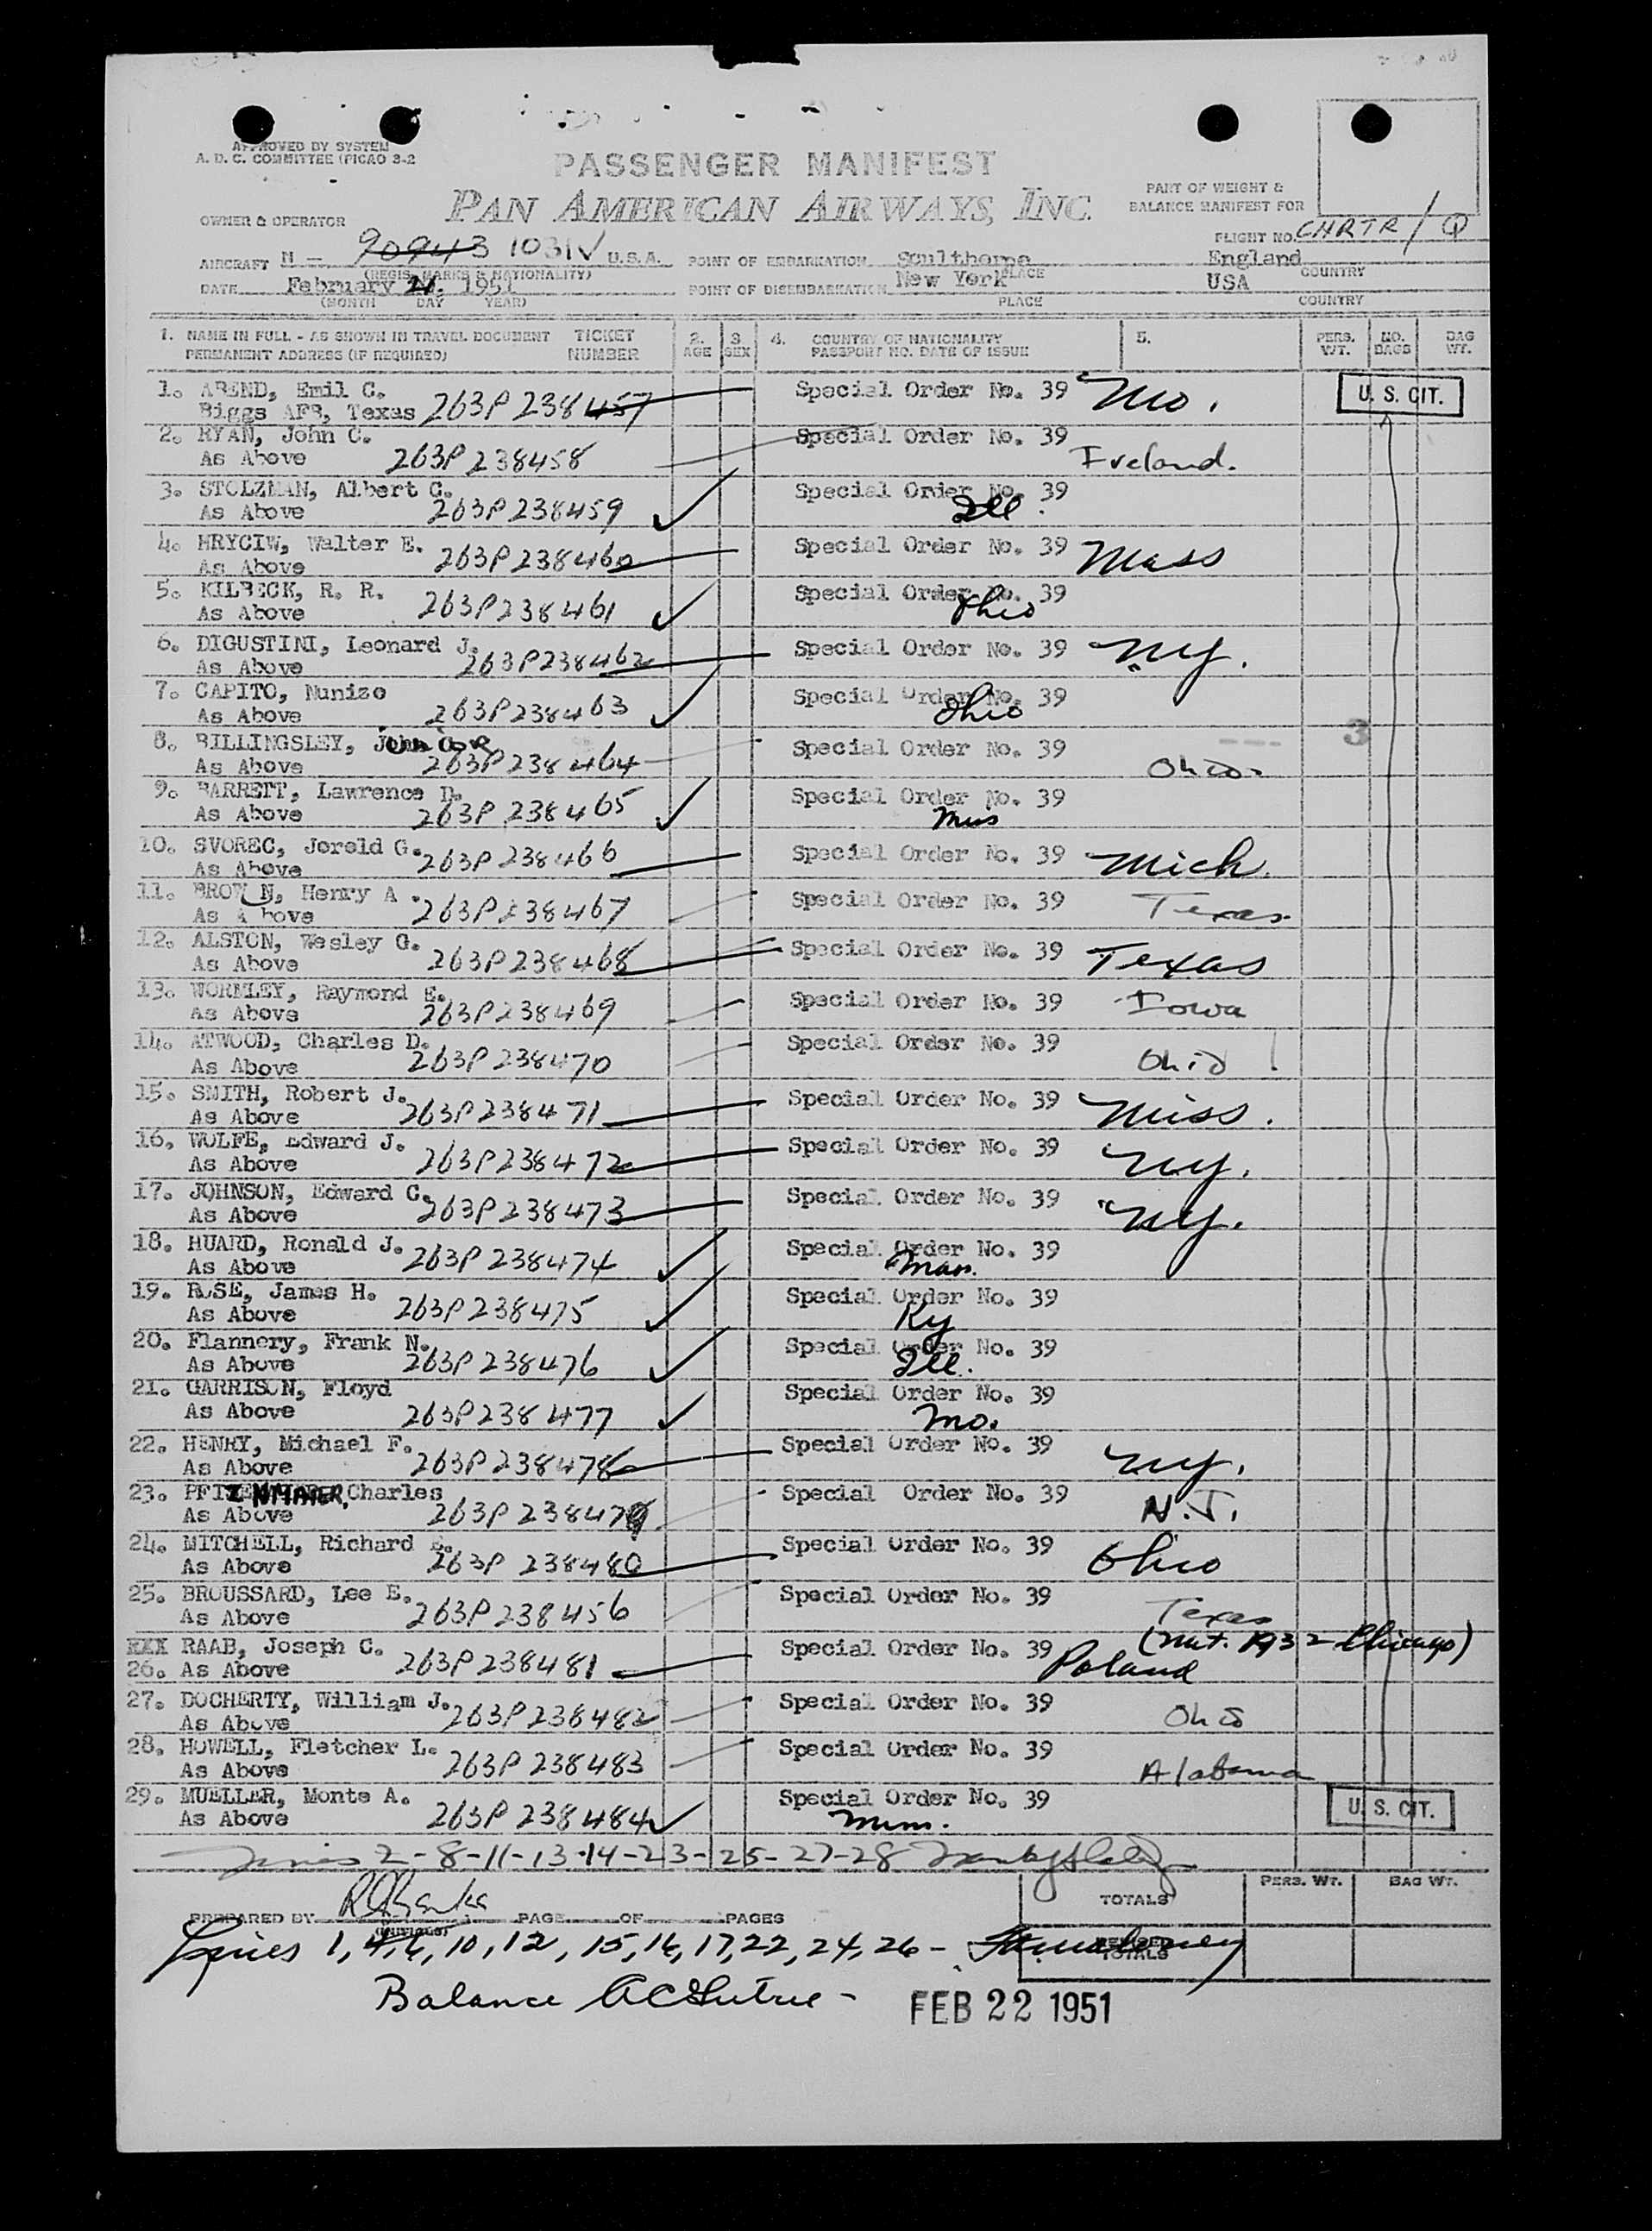 APPROVED BY SYSTEM
A. D. C. COMMITTEE (PICAO 3-2
PASSENGER MANIFEST
PAN AMERICAN AIRWAYS, INC.
PART OF WEIGHT &
BALANCE MANIFEST FOR
OWNER & OPERATOR
FLIGHT NO. CHRTR/Q
AIRCRAFT N - 90943 1031V U.S.A. POINT OF EMBARKATION Sculthorpe England
(REGIS. MARKS & NATIONALITY) PLACE COUNTRY
DATE February 21. 1951 POINT OF DISEMBARKATION New York USA
(MONTH DAY YEAR) PLACE COUNTRY
1. NAME IN FULL - AS SHOWN IN TRAVEL DOCUMENT TICKET 2. 3. 4. COUNTRY OF NATIONALITY 5. PERS. NO. BAG
PERMANENT ADDRESS (IF REQUIRED) NUMBER AGE SEX PASSPORT NO. DATE OF ISSUE WT. BAGS WT.
1. AREND, Emil C. Special Order No. 39 Mo. U. S. CIT.
Biggs AFB, Texas 263P238457
2. RYAN, John C. Special Order No. 39
As Above 263P238458 Ireland.
3. STOLZMAN, Albert C. Special Order No. 39
As Above 263P238459 Ill.
4. HRYCIW, Walter E. 263P238460 Special Order No. 39 Mass
As Above
5. KILBECK, R. R. 263P238461 Special Order No. 39
As Above Ohio
6. DIGUSTINI, Leonard J. Special Order No. 39 NY.
As Above 263P238462
7. CAPITO, Nunizo Special Order No. 39
As Above 263P238463 Ohio
8. BILLINGSLEY, Special Order No. 39 3
As Above 263P238464 Ohio
9. BARRETT, Lawrence D. Special Order No. 39
As Above 263P238465
10. SVOREC, Jerold G. 263P238466 Special Order No. 39 Mich.
As Above
11. BROWN, Henry A. 263P238467 Special Order No. 39 Texas
As A bove
12. ALSTON, Wesley G. Special Order No. 39 Texas
As Above 263P238468
13. WORMLEY, Raymond E. Special Order No. 39 Iowa
As Above 263P238469
14. ATWOOD, Charles D. Special Order No. 39
As Above 263P238470 Ohio
15. SMITH, Robert J. Special Order No. 39 Miss.
As Above 263P238471
16. WOLFE, Edward J. Special Order No. 39
As Above 263P238472 NY.
17. JOHNSON, Edward C. Special Order No. 39 NY.
As Above 263P238473
18. HUARD, Ronald J. 263P238474 Special Order No. 39
As Above Mass.
19. ROSE, James H. 263P238475 Special Order No. 39
As Above Ky
20. Flannery, Frank N. Special Order No. 39
As Above 263P238476 Ill.
21. GARRISON, Floyd Special Order No. 39
As Above 263P238477 Mo.
22. HENRY, Michael F. Special Order No. 39 NY.
As Above 263P238478
23. Charles Special Order No. 39
As Above 263P238479 N.J.
24. MITCHELL, Richard Special Order No. 39 Ohio
As Above 263P238480
25. BROUSSARD, Lee E. Special Order No. 39
As Above 263P238456 Texas
XXX RAAB, Joseph C. Special Order No. 39 (Nat. 1932 Chicago)
26. As Above 263P238481 Poland
27. DOCHERTY, William J. Special Order No. 39
As Above 263P238482 Ohio
28. HOWELL, Fletcher L. Special Order No. 39
As Above 263P238483 Alabama
29. MUELLER, Monte A. Special Order No. 39 U. S. CIT.
As Above 263P238484
2-8-11-13-14-23-25-27-28
TOTALS PERS. WT. BAG WT.
PREPARED BY PAGE OF PAGES
(INITIALS)
Lines 1, 4, 6, 10, 12, 15, 16, 17, 22, 24, 26 - REVISED TOTALS
Balance
FEB 22 1951